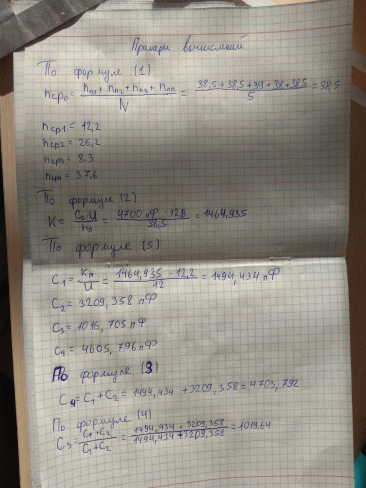 Примеры вычислений
По формуле (1)
nср₀ = (nп1 + nп2 + nп3 + nпп)/N = (38,5 + 38,5 + 39 + 38 + 38,5)/5 = 38,5
nср1 = 12,2
nср2 = 26,2
nср3 = 8.3
nср4 = 37,6
По формуле (2)
K = (C₀·U)/n₀ = (4700 пФ · 12В)/38,5 = 1464,935
По формуле (5)
C₁ = Kn/U = (1464,935 · 12,2)/12 = 1494,434 пФ
C₂ = 3209,358 пФ
C₃ = 1016,705 пФ
C₄ = 4605,796 пФ
По формуле (3)
C₄ = C₁ + C₂ = 1494,434 + 3209,358 = 4703,792
По формуле (4)
C₃ = (C₁·C₂)/(C₁+C₂) = (1494,434 · 3209,358)/(1494,434 + 3209,358) = 1019,64